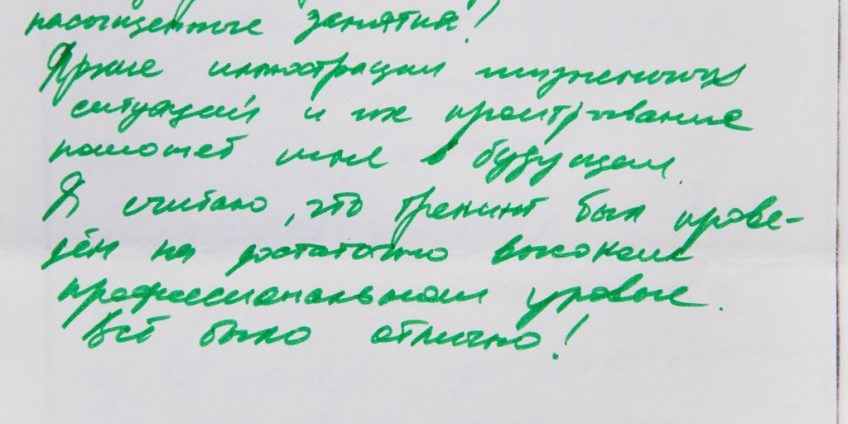 насыщенные занятия!
Яркие иллюстрации жизненных
ситуаций и их проигрывание
поможет мне в будущем.
Я считаю, что тренинг был прове-
дён на достаточно высоком
профессиональном уровне.
Всё было отлично!